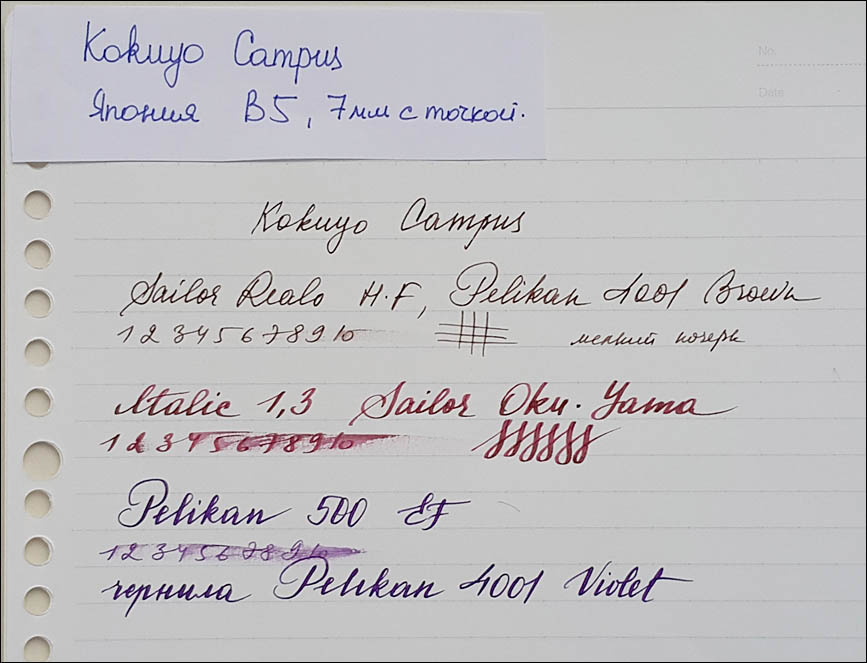 Kokuyo Campus
Япония B5, 7мм с точкой.
No.
Date
Kokuyo Campus
Sailor Realo H-F, Pelikan 4001 Brown
1 2 3 4 5 6 7 8 9 10
мелкий почерк
Italic 1,3 Sailor Oku-Yama
1 2 3 4 5 6 7 8 9 10
Pelikan 500 EF
1 2 3 4 5 6 7 8 9 10
чернила Pelikan 4001 Violet